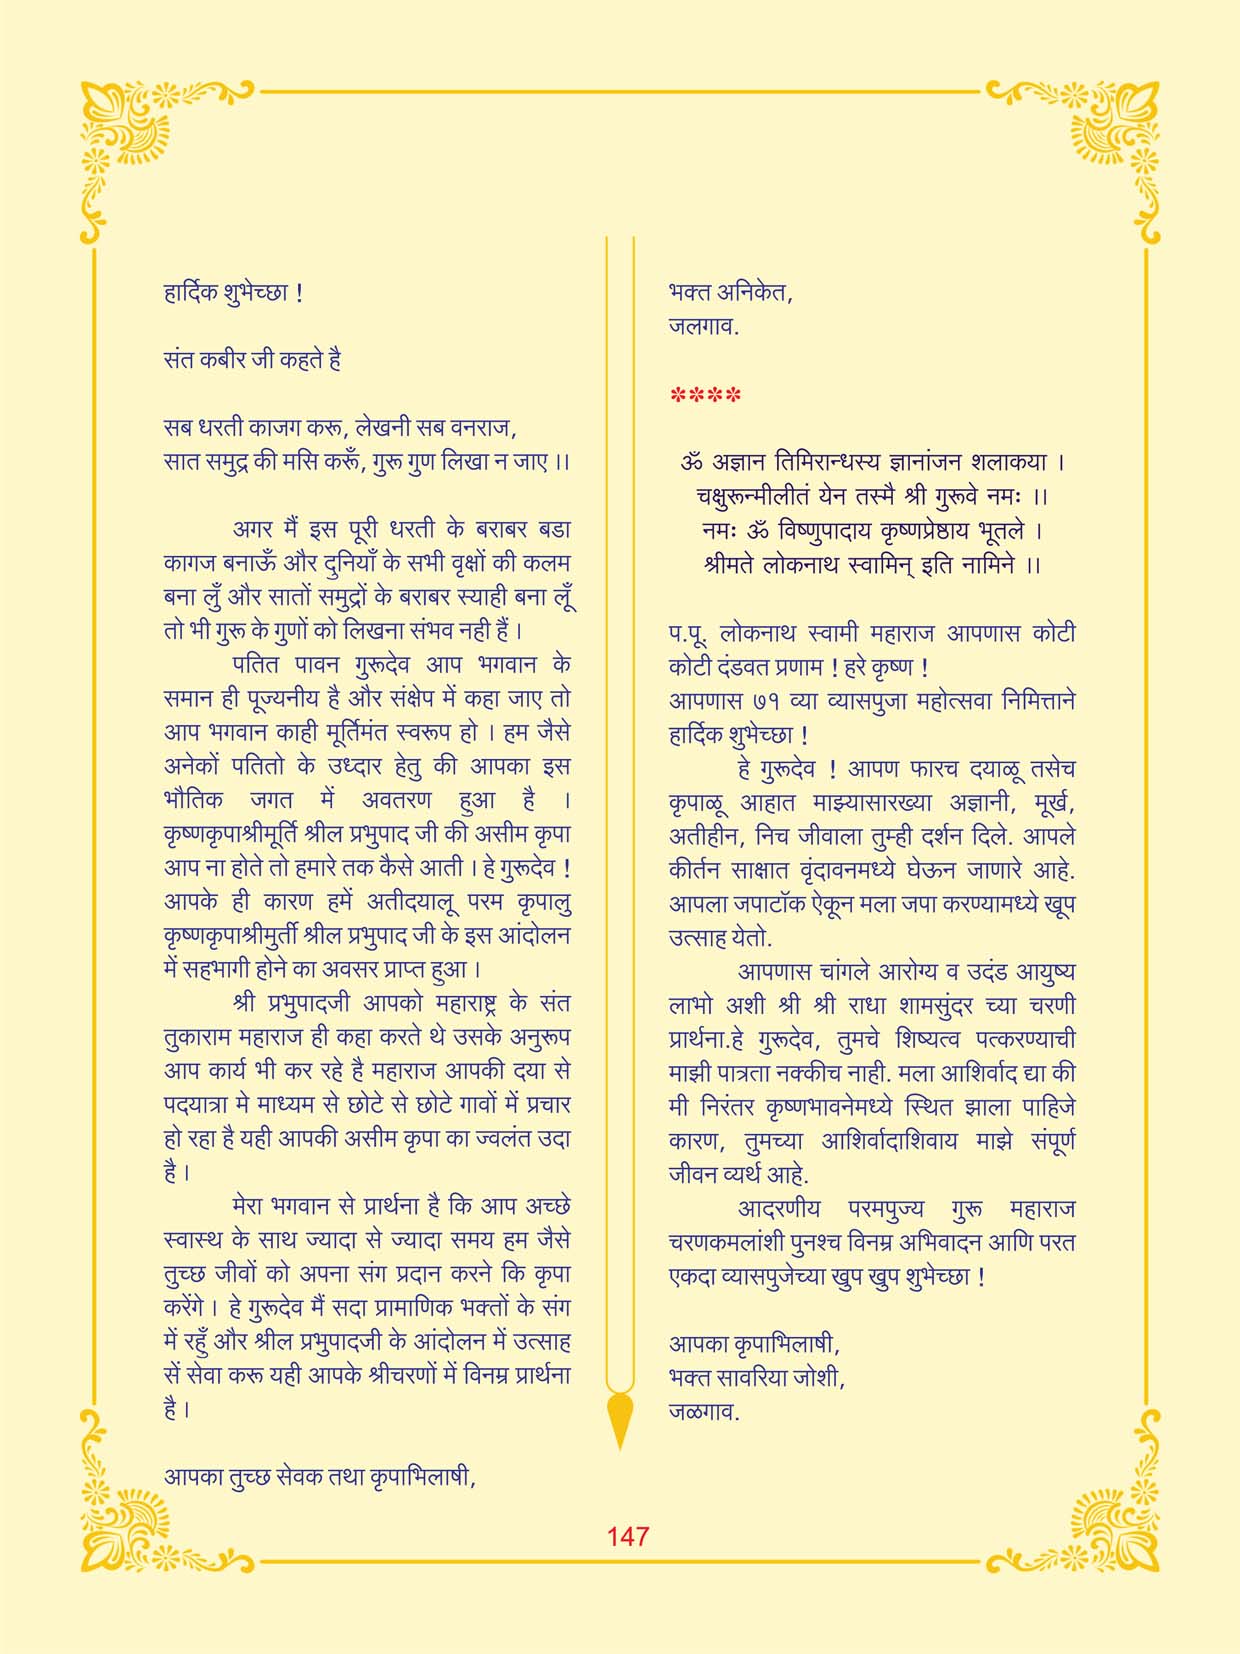 हार्दिक शुभेच्छा !
संत कबीर जी कहते है
सब धरती काजग करू, लेखनी सब वनराज,
सात समुद्र की मसि करूँ, गुरू गुण लिखा न जाए ।।
अगर मैं इस पूरी धरती के बराबर बडा
कागज बनाऊँ और दुनियाँ के सभी वृक्षों की कलम
बना लुँ और सातों समुद्रों के बराबर स्याही बना लूँ
तो भी गुरू के गुणों को लिखना संभव नही हैं ।
पतित पावन गुरूदेव आप भगवान के
समान ही पूज्यनीय है और संक्षेप में कहा जाए तो
आप भगवान काही मूर्तिमंत स्वरूप हो । हम जैसे
अनेकों पतितो के उध्दार हेतु की आपका इस
भौतिक जगत में अवतरण हुआ है ।
कृष्णकृपाश्रीमूर्ति श्रील प्रभुपाद जी की असीम कृपा
आप ना होते तो हमारे तक कैसे आती । हे गुरूदेव !
आपके ही कारण हमें अतीदयालू परम कृपालु
कृष्णकृपाश्रीमुर्ती श्रील प्रभुपाद जी के इस आंदोलन
में सहभागी होने का अवसर प्राप्त हुआ ।
श्री प्रभुपादजी आपको महाराष्ट्र के संत
तुकाराम महाराज ही कहा करते थे उसके अनुरूप
आप कार्य भी कर रहे है महाराज आपकी दया से
पदयात्रा मे माध्यम से छोटे से छोटे गावों में प्रचार
हो रहा है यही आपकी असीम कृपा का ज्वलंत उदा
है ।
मेरा भगवान से प्रार्थना है कि आप अच्छे
स्वास्थ के साथ ज्यादा से ज्यादा समय हम जैसे
तुच्छ जीवों को अपना संग प्रदान करने कि कृपा
करेंगे । हे गुरूदेव मैं सदा प्रामाणिक भक्तों के संग
में रहुँ और श्रील प्रभुपादजी के आंदोलन में उत्साह
सें सेवा करू यही आपके श्रीचरणों में विनम्र प्रार्थना
है ।
आपका तुच्छ सेवक तथा कृपाभिलाषी,
भक्त अनिकेत,
जलगाव.
****
ॐ अज्ञान तिमिरान्धस्य ज्ञानांजन शलाकया ।
चक्षुरून्मीलीतं येन तस्मै श्री गुरूवे नमः ।।
नमः ॐ विष्णुपादाय कृष्णप्रेष्ठाय भूतले ।
श्रीमते लोकनाथ स्वामिन् इति नामिने ।।
प.पू. लोकनाथ स्वामी महाराज आपणास कोटी
कोटी दंडवत प्रणाम ! हरे कृष्ण !
आपणास ७१ व्या व्यासपुजा महोत्सवा निमित्ताने
हार्दिक शुभेच्छा !
हे गुरूदेव ! आपण फारच दयाळू तसेच
कृपाळू आहात माझ्यासारख्या अज्ञानी, मूर्ख,
अतीहीन, निच जीवाला तुम्ही दर्शन दिले. आपले
कीर्तन साक्षात वृंदावनमध्ये घेऊन जाणारे आहे.
आपला जपाटॉक ऐकून मला जपा करण्यामध्ये खूप
उत्साह येतो.
आपणास चांगले आरोग्य व उदंड आयुष्य
लाभो अशी श्री श्री राधा शामसुंदर च्या चरणी
प्रार्थना.हे गुरूदेव, तुमचे शिष्यत्व पत्करण्याची
माझी पात्रता नक्कीच नाही. मला आशिर्वाद द्या की
मी निरंतर कृष्णभावनेमध्ये स्थित झाला पाहिजे
कारण, तुमच्या आशिर्वादाशिवाय माझे संपूर्ण
जीवन व्यर्थ आहे.
आदरणीय परमपुज्य गुरू महाराज
चरणकमलांशी पुनश्च विनम्र अभिवादन आणि परत
एकदा व्यासपुजेच्या खुप खुप शुभेच्छा !
आपका कृपाभिलाषी,
भक्त सावरिया जोशी,
जळगाव.
147